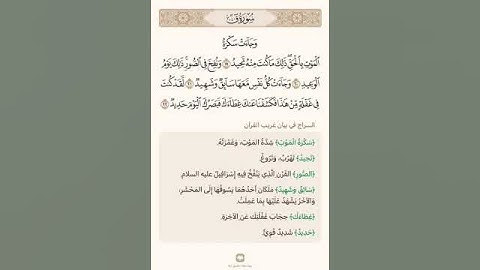 سُورَةُ قٓ
وَجَآءَتْ سَكْرَةُ
ٱلْمَوْتِ بِٱلْحَقِّ ذَٰلِكَ مَا كُنتَ مِنْهُ تَحِيدُ ١٩ وَنُفِخَ فِى ٱلصُّورِ ذَٰلِكَ يَوْمُ
ٱلْوَعِيدِ ٢٠ وَجَآءَتْ كُلُّ نَفْسٍ مَّعَهَا سَآئِقٌ وَشَهِيدٌ ٢١ لَّقَدْ كُنتَ
فِى غَفْلَةٍ مِّنْ هَٰذَا فَكَشَفْنَا عَنكَ غِطَآءَكَ فَبَصَرُكَ ٱلْيَوْمَ حَدِيدٌ ٢٢
السراج في بيان غريب القرآن
﴿سَكْرَةُ الْمَوْتِ﴾ شِدَّةُ المَوْتِ، وَغَمْرَتُهُ.
﴿تَحِيدُ﴾ تَهْرُبُ، وَتَرُوغُ.
﴿الصُّورِ﴾ القَرْنِ الَّذِي يَنْفُخُ فِيهِ إِسْرَافِيلُ عليه السلام.
﴿سَائِقٌ وَشَهِيدٌ﴾ مَلَكَانِ أَحَدُهُمَا يَسُوقُهَا إِلَى المَحْشَرِ،
وَالآخَرُ يَشْهَدُ عَلَيْهَا بِمَا عَمِلَتْ.
﴿غِطَاءَكَ﴾ حِجَابَ غَفْلَتِكَ عَنِ الآخِرَةِ.
﴿حَدِيدٌ﴾ شَدِيدٌ قَوِيٌّ.